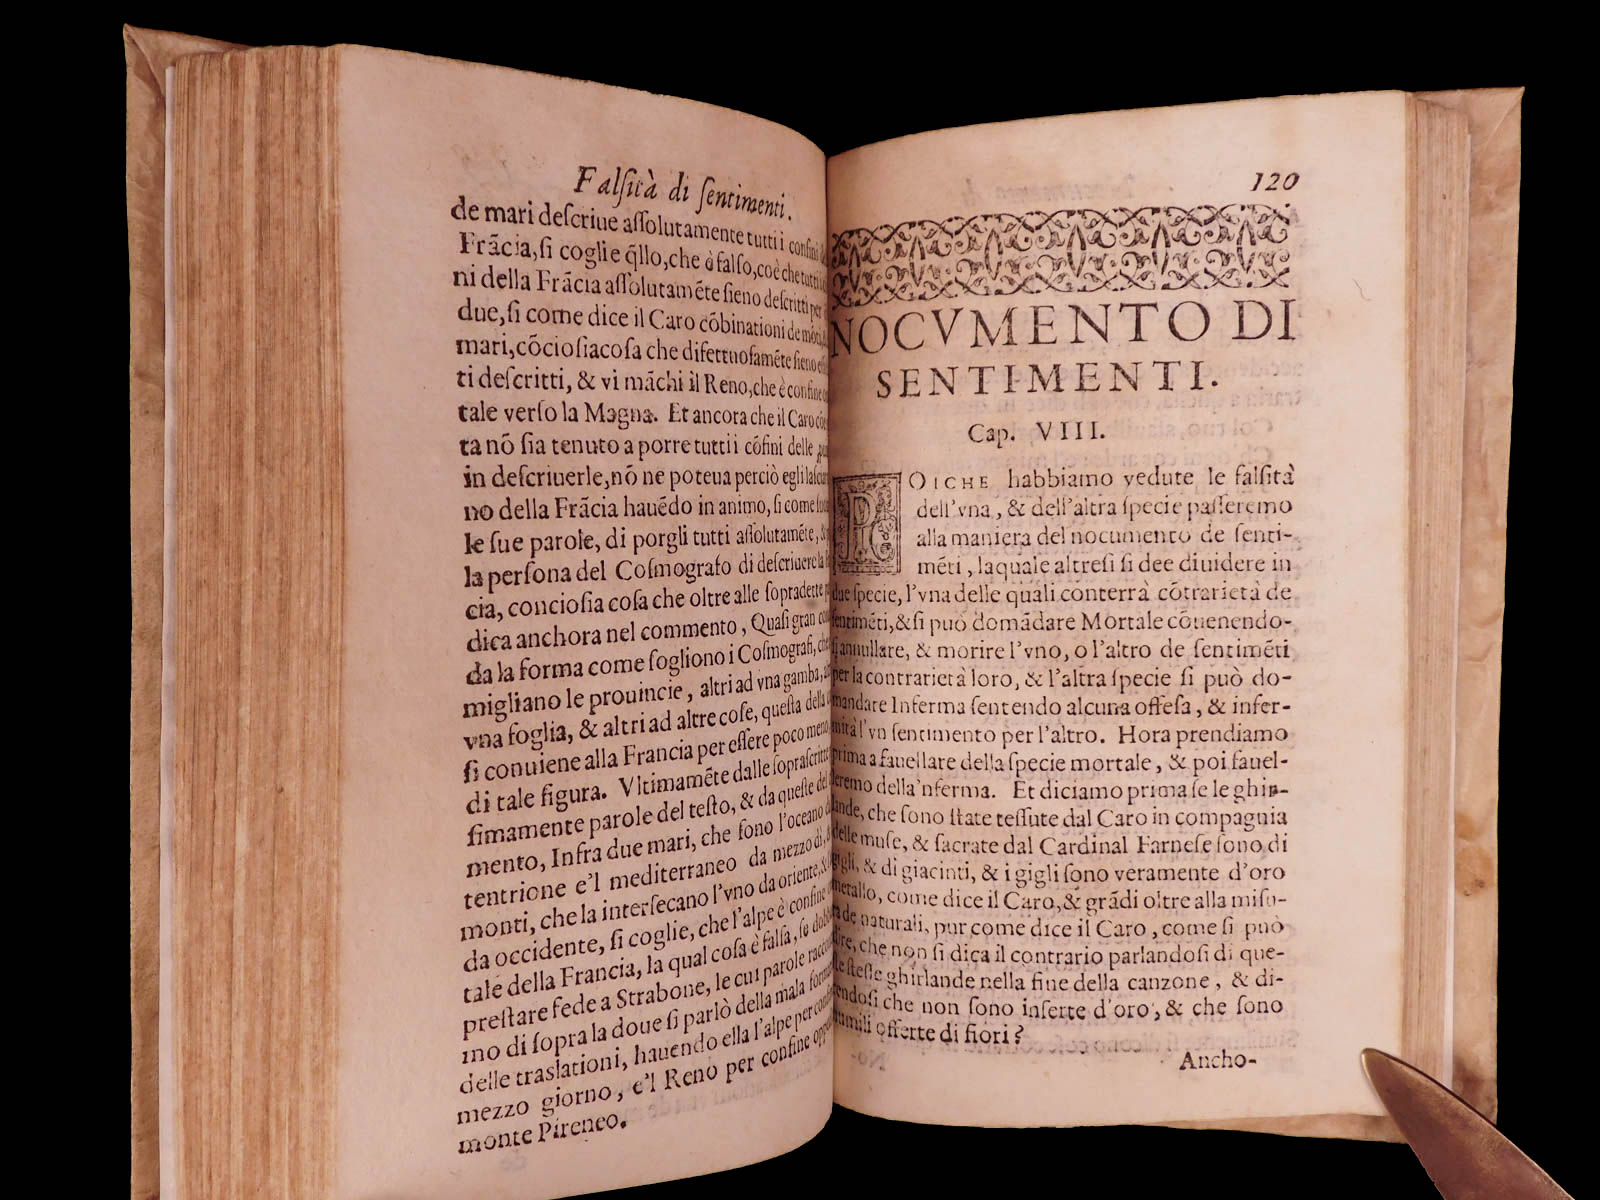 Falſità di ſentimenti.
de mari deſcriue aſſolutamente tutti i confini
Frãcia, ſi coglie q̃llo, che è falſo, coè che tutti i
ni della Frãcia aſſolutamẽte ſieno deſcritti per
due, ſi come dice il Caro cõbinationi de
mari, cõcioſiacoſa che difettuoſamẽte ſieno
ti deſcritti, & vi mãchi il Reno, che è confine
tale verſo la Magna. Et ancora che il Caro
ta nõ ſia tenuto a porre tutti i cõfini delle
in deſcriuerle, nõ ne poteua perciò egli
no della Frãcia hauẽdo in animo, ſi come
le ſue parole, di porgli tutti aſſolutamẽte,
la perſona del Coſmografo di deſcriuere la
cia, concioſia coſa che oltre alle ſopradette
dica anchora nel commento, Quaſi gran
da la forma come ſogliono i Coſmografi,
migliano le prouincie, altri ad vna gamba,
vna foglia, & altri ad altre coſe, queſta della
ſi conuiene alla Francia per eſſere poco meno
di tale figura. Vltimamẽte dalle ſopraſcritte
ſimamente parole del teſto, & da queſte del
mento, Infra due mari, che ſono l'oceano
tentrione e'l mediterraneo da mezzo dì,
monti, che la interſecano l'vno da oriente, &
da occidente, ſi coglie, che l'alpe è confine
tale della Francia, la qual coſa è falſa, ſe
preſtare fede a Strabone, le cui parole
mo di ſopra la doue ſi parlò della mala
delle traslationi, hauendo ella l'alpe per
mezzo giorno, e'l Reno per confine
monte Pireneo.
120
NOCVMENTO DI
SENTIMENTI.
Cap. VIII.
POICHE habbiamo vedute le falſità
dell'vna, & dell'altra ſpecie paſſeremo
alla maniera del nocumento de ſenti-
mẽti, laquale altreſi ſi dee diuidere in
due ſpecie, l'vna delle quali conterrà cõtrarietà de
ſentimẽti, & ſi può domãdare Mortale cõuenendo-
ſi annullare, & morire l'vno, o l'altro de ſentimẽti
per la contrarietà loro, & l'altra ſpecie ſi può do-
mandare Inferma ſentendo alcuna offeſa, & infer-
mità l'vn ſentimento per l'altro. Hora prendiamo
prima a fauellare della ſpecie mortale, & poi fauel-
leremo della'nferma. Et diciamo prima ſe le ghir-
lande, che ſono ſtate teſſute dal Caro in compagnia
delle muſe, & ſacrate dal Cardinal Farneſe ſono di
gigli, & di giacinti, & i gigli ſono veramente d'oro
metallo, come dice il Caro, & grãdi oltre alla miſu-
ra de naturali, pur come dice il Caro, come ſi può
dire, che non ſi dica il contrario parlandoſi di que-
le ſteſſe ghirlande nella fine della canzone, & di-
cendoſi che non ſono inſerte d'oro, & che ſono
humili offerte di fiori?
Ancho-